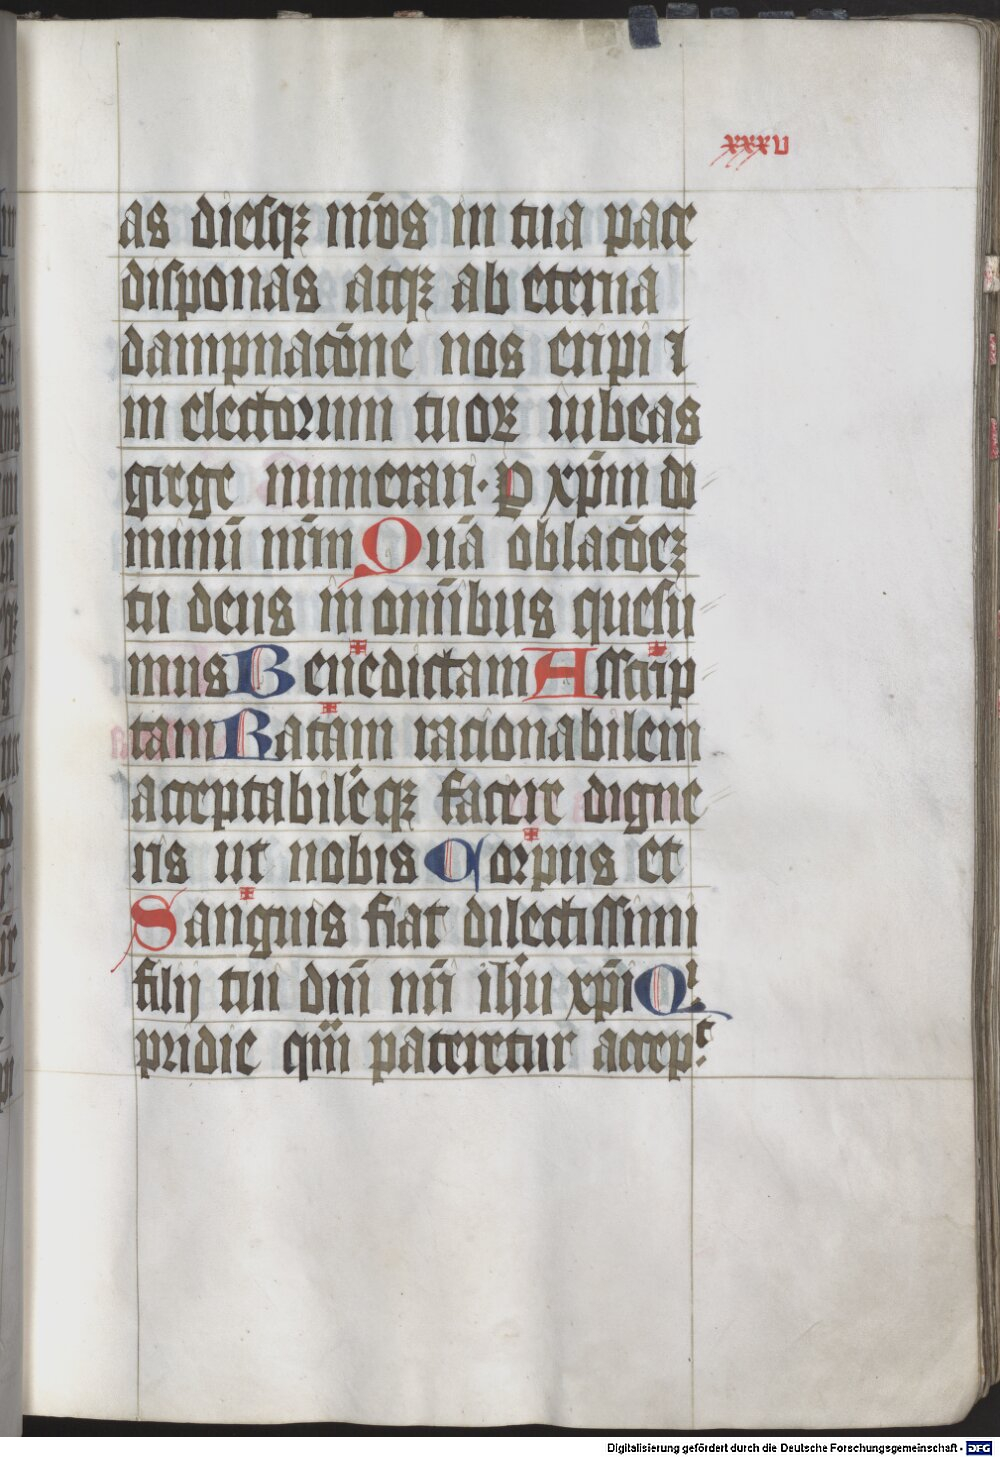 xxxv
as diesqꝫ nr̄os in tua pace
disponas atqꝫ ab eterna
dampnatōne nos eripi ⁊
in electorum tuoꝝ iubeas
grege numerari. P xp̄m do
minū nr̄m Quā oblatōeꝫ
tu deus in om̄ibus quesu
mus Benedictam Asscrip
tam Ratam racionabilem
acceptabilēqꝫ facere digne
ris ut nobis Corpus et
Sanguis fiat dilectissimi
filij tui dn̄i nr̄i ih̄u xp̄i Qⁱ
pridie qm̄ pateretur accepᵗ
Digitalisierung gefördert durch die Deutsche Forschungsgemeinschaft - DFG